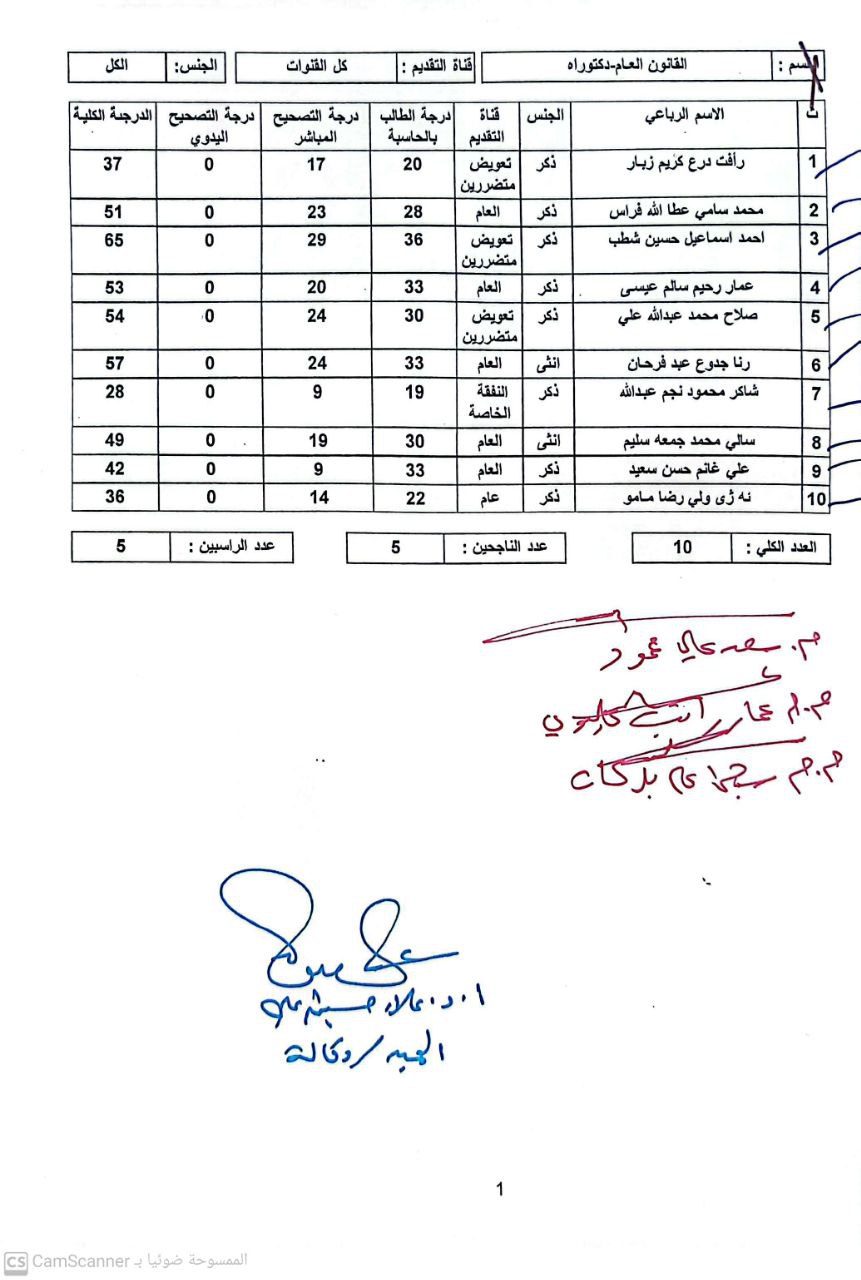 القسم : القانون العام-دكتوراه قناة التقديم : كل القنوات الجنس: الكل
ت الاسم الرباعي الجنس قناة التقديم درجة الطالب بالحاسبة درجة التصحيح المباشر درجة التصحيح اليدوي الدرجة الكلية
1 رأفت درع كريم زبار ذكر تعويض متضررين 20 17 0 37
2 محمد سامي عطا الله فراس ذكر العام 28 23 0 51
3 احمد اسماعيل حسين شطب ذكر تعويض متضررين 36 29 0 65
4 عمار رحيم سالم عيسى ذكر العام 33 20 0 53
5 صلاح محمد عبدالله علي ذكر تعويض متضررين 30 24 0 54
6 رنا جدوع عبد فرحان انثى العام 33 24 0 57
7 شاكر محمود نجم عبدالله ذكر النفقة الخاصة 19 9 0 28
8 سالي محمد جمعه سليم انثى العام 30 19 0 49
9 علي غانم حسن سعيد ذكر العام 33 9 0 42
10 نه ژى ولي رضا مامو ذكر عام 22 14 0 36
العدد الكلي : 10 عدد الناجحين : 5 عدد الراسبين : 5
م. سعد علي محمود
م.م عمار
م.م
ا. د. علاء حسين علي
العميد / وكالة
1
CS CamScanner الممسوحة ضوئيا بـ